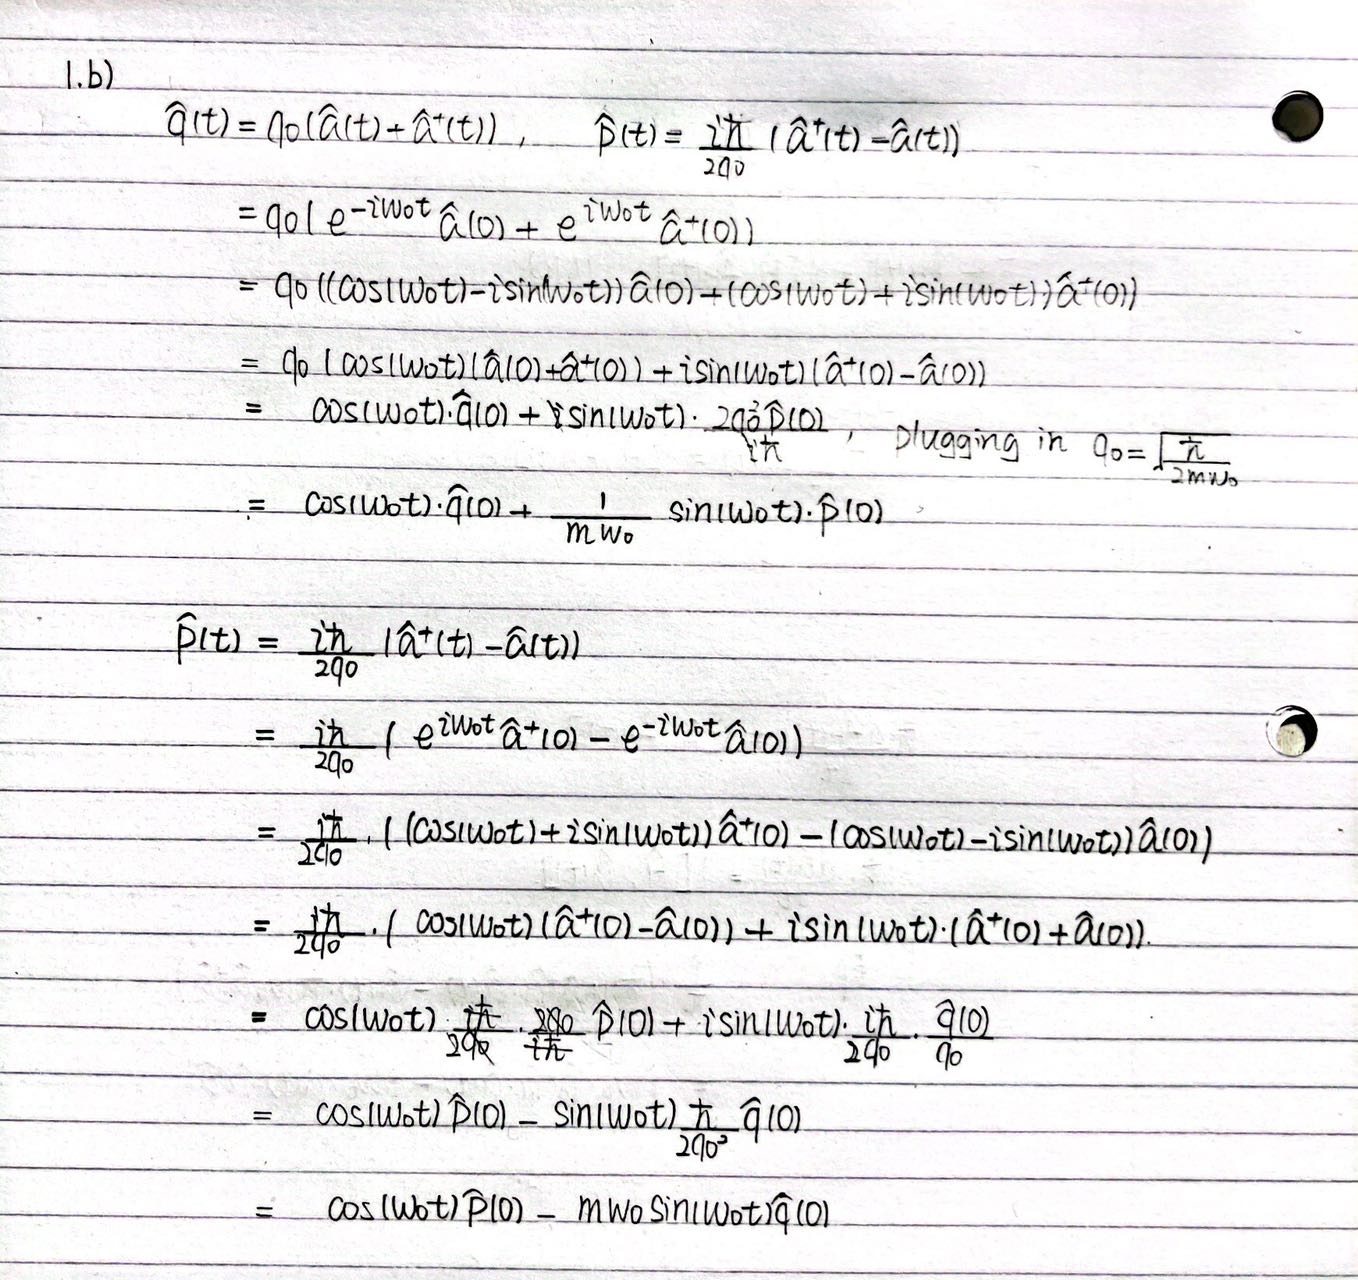 1.b)
q̂(t) = q₀(â(t) + â⁺(t)), p̂(t) = iħ/2q₀ (â⁺(t) - â(t))
= q₀(e^{-iω₀t} â(0) + e^{iω₀t} â⁺(0))
= q₀((cos(ω₀t) - isin(ω₀t)) â(0) + (cos(ω₀t) + isin(ω₀t)) â⁺(0))
= q₀(cos(ω₀t)(â(0) + â⁺(0)) + isin(ω₀t)(â⁺(0) - â(0))
= cos(ω₀t)·q̂(0) + isin(ω₀t)· 2q₀²p̂(0)/iħ, plugging in q₀ = √(ħ/2mω₀)
= cos(ω₀t)·q̂(0) + 1/mω₀ sin(ω₀t)·p̂(0)
p̂(t) = iħ/2q₀ (â⁺(t) - â(t))
= iħ/2q₀ (e^{iω₀t} â⁺(0) - e^{-iω₀t} â(0))
= iħ/2q₀ · ((cos(ω₀t) + isin(ω₀t)) â⁺(0) - (cos(ω₀t) - isin(ω₀t)) â(0))
= iħ/2q₀ · (cos(ω₀t)(â⁺(0) - â(0)) + isin(ω₀t)·(â⁺(0) + â(0)).
= cos(ω₀t) · iħ/2q₀ · 2q₀/iħ p̂(0) + isin(ω₀t) · iħ/2q₀ · q̂(0)/q₀
= cos(ω₀t) p̂(0) - sin(ω₀t) ħ/2q₀² q̂(0)
= cos(ω₀t) p̂(0) - mω₀ sin(ω₀t) q̂(0)